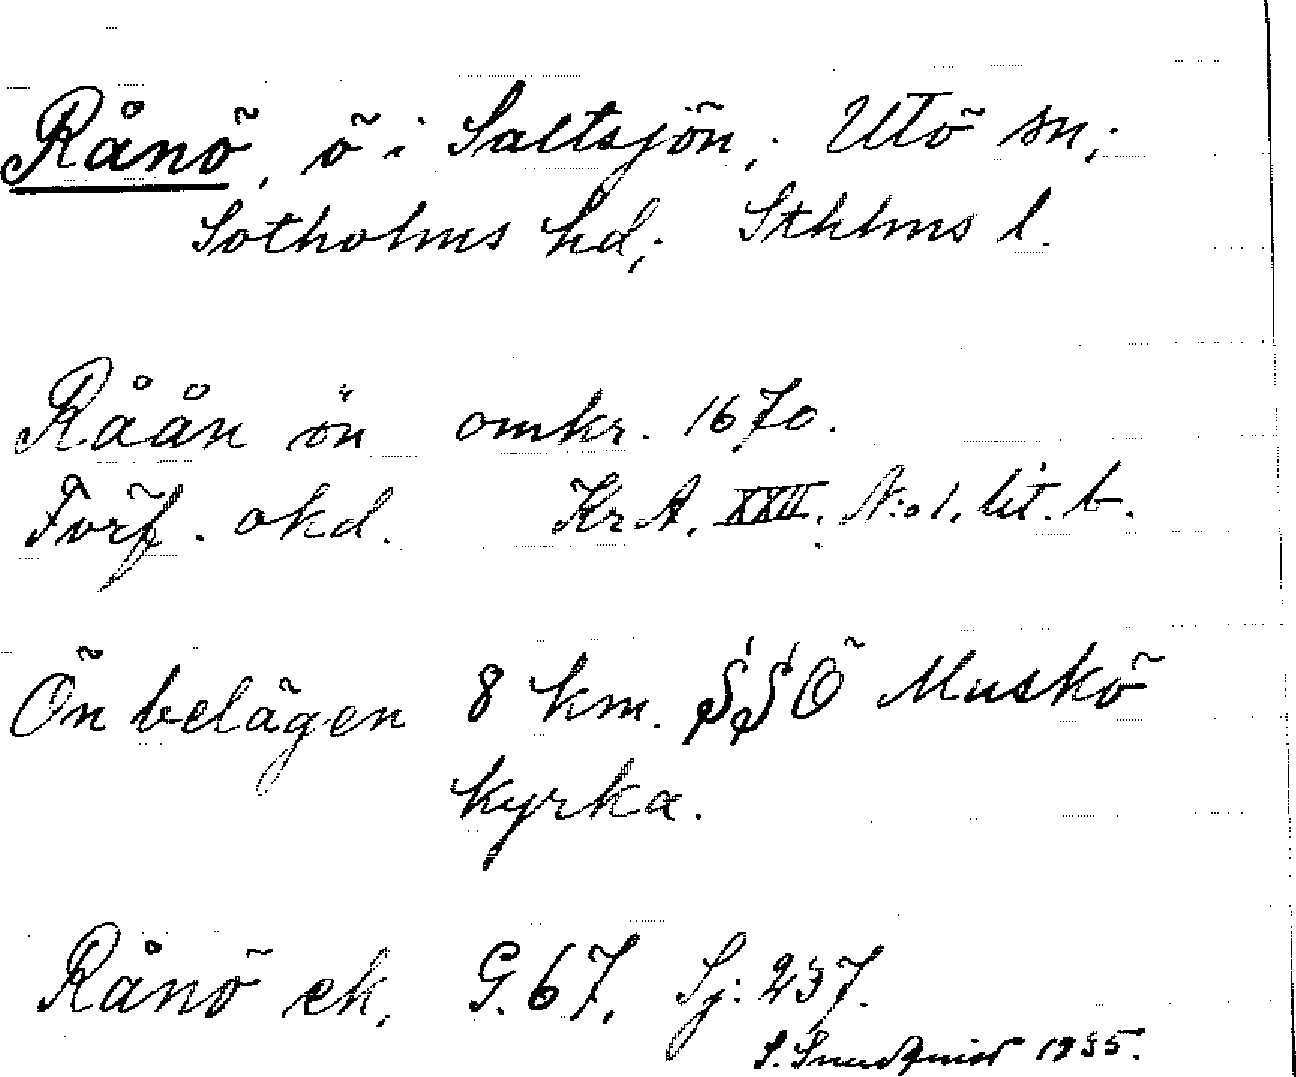 Rånö, ö i Saltsjön, Utö sn,
Sotholms hd, Sthlms l.
Råån ön omkr. 1670.
Förf. okd. Kr.A. XXII. N:o 1. lit. b.
Ön belägen 8 km. SSÖ Muskö
kyrka.
Rånö ek. G. 67, Sj: 237.
S. Sundquist 1935.